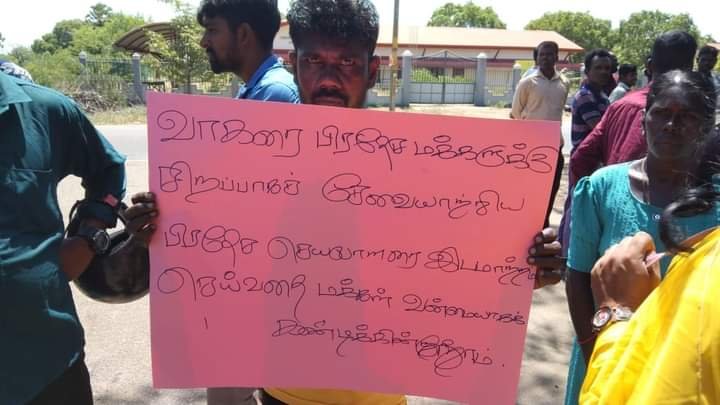 வாகரை பிரதேச மக்களுக்கு
சிறப்பாகச் சேவையாற்றிய
பிரதேச செயலாளரை இடமாற்றம்
செய்வதை மக்கள் வன்மையாகக்
கண்டிக்கின்றோம்.